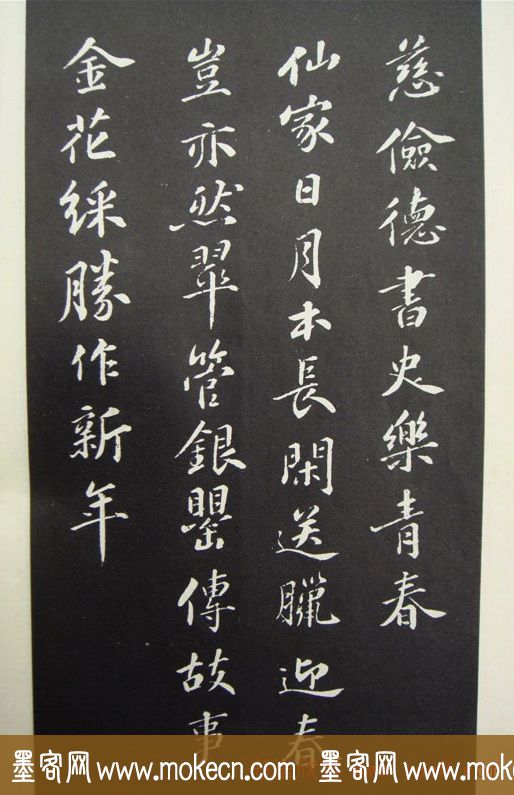 慈儉德書史樂青春
仙家日月本長閑送臘迎春
豈亦然翠管銀罌傳故事
金花綵勝作新年
墨客网 www.mokecn.com 墨客网 www.mokecn.com